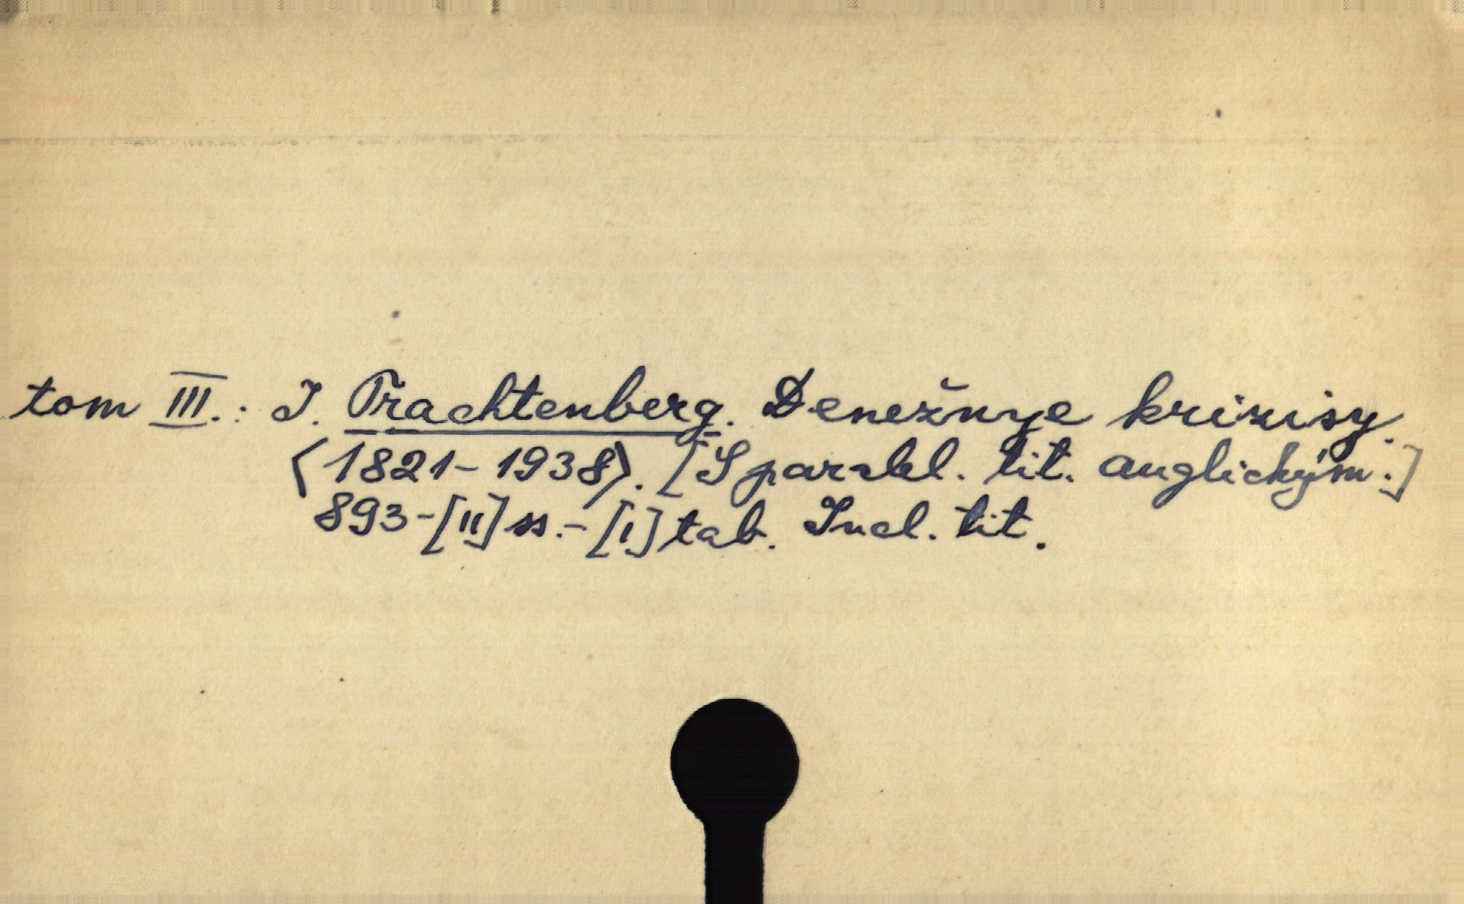 tom III.: I. Trachtenberg. Denežnye krizisy.
(1821-1938). [S paralel. tit. anglickým.]
893-[II] ss.-[I] tab. Incl. tit.